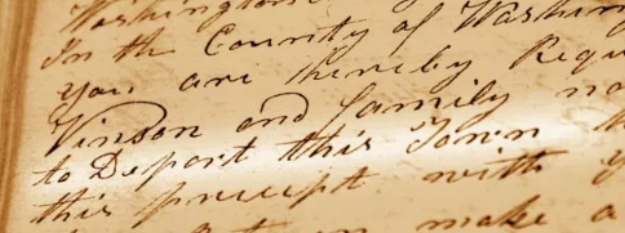 Washington
In the County of Washin
you are hereby Requ
Vinson and family no
to Depart this Town
this precept with y
make a